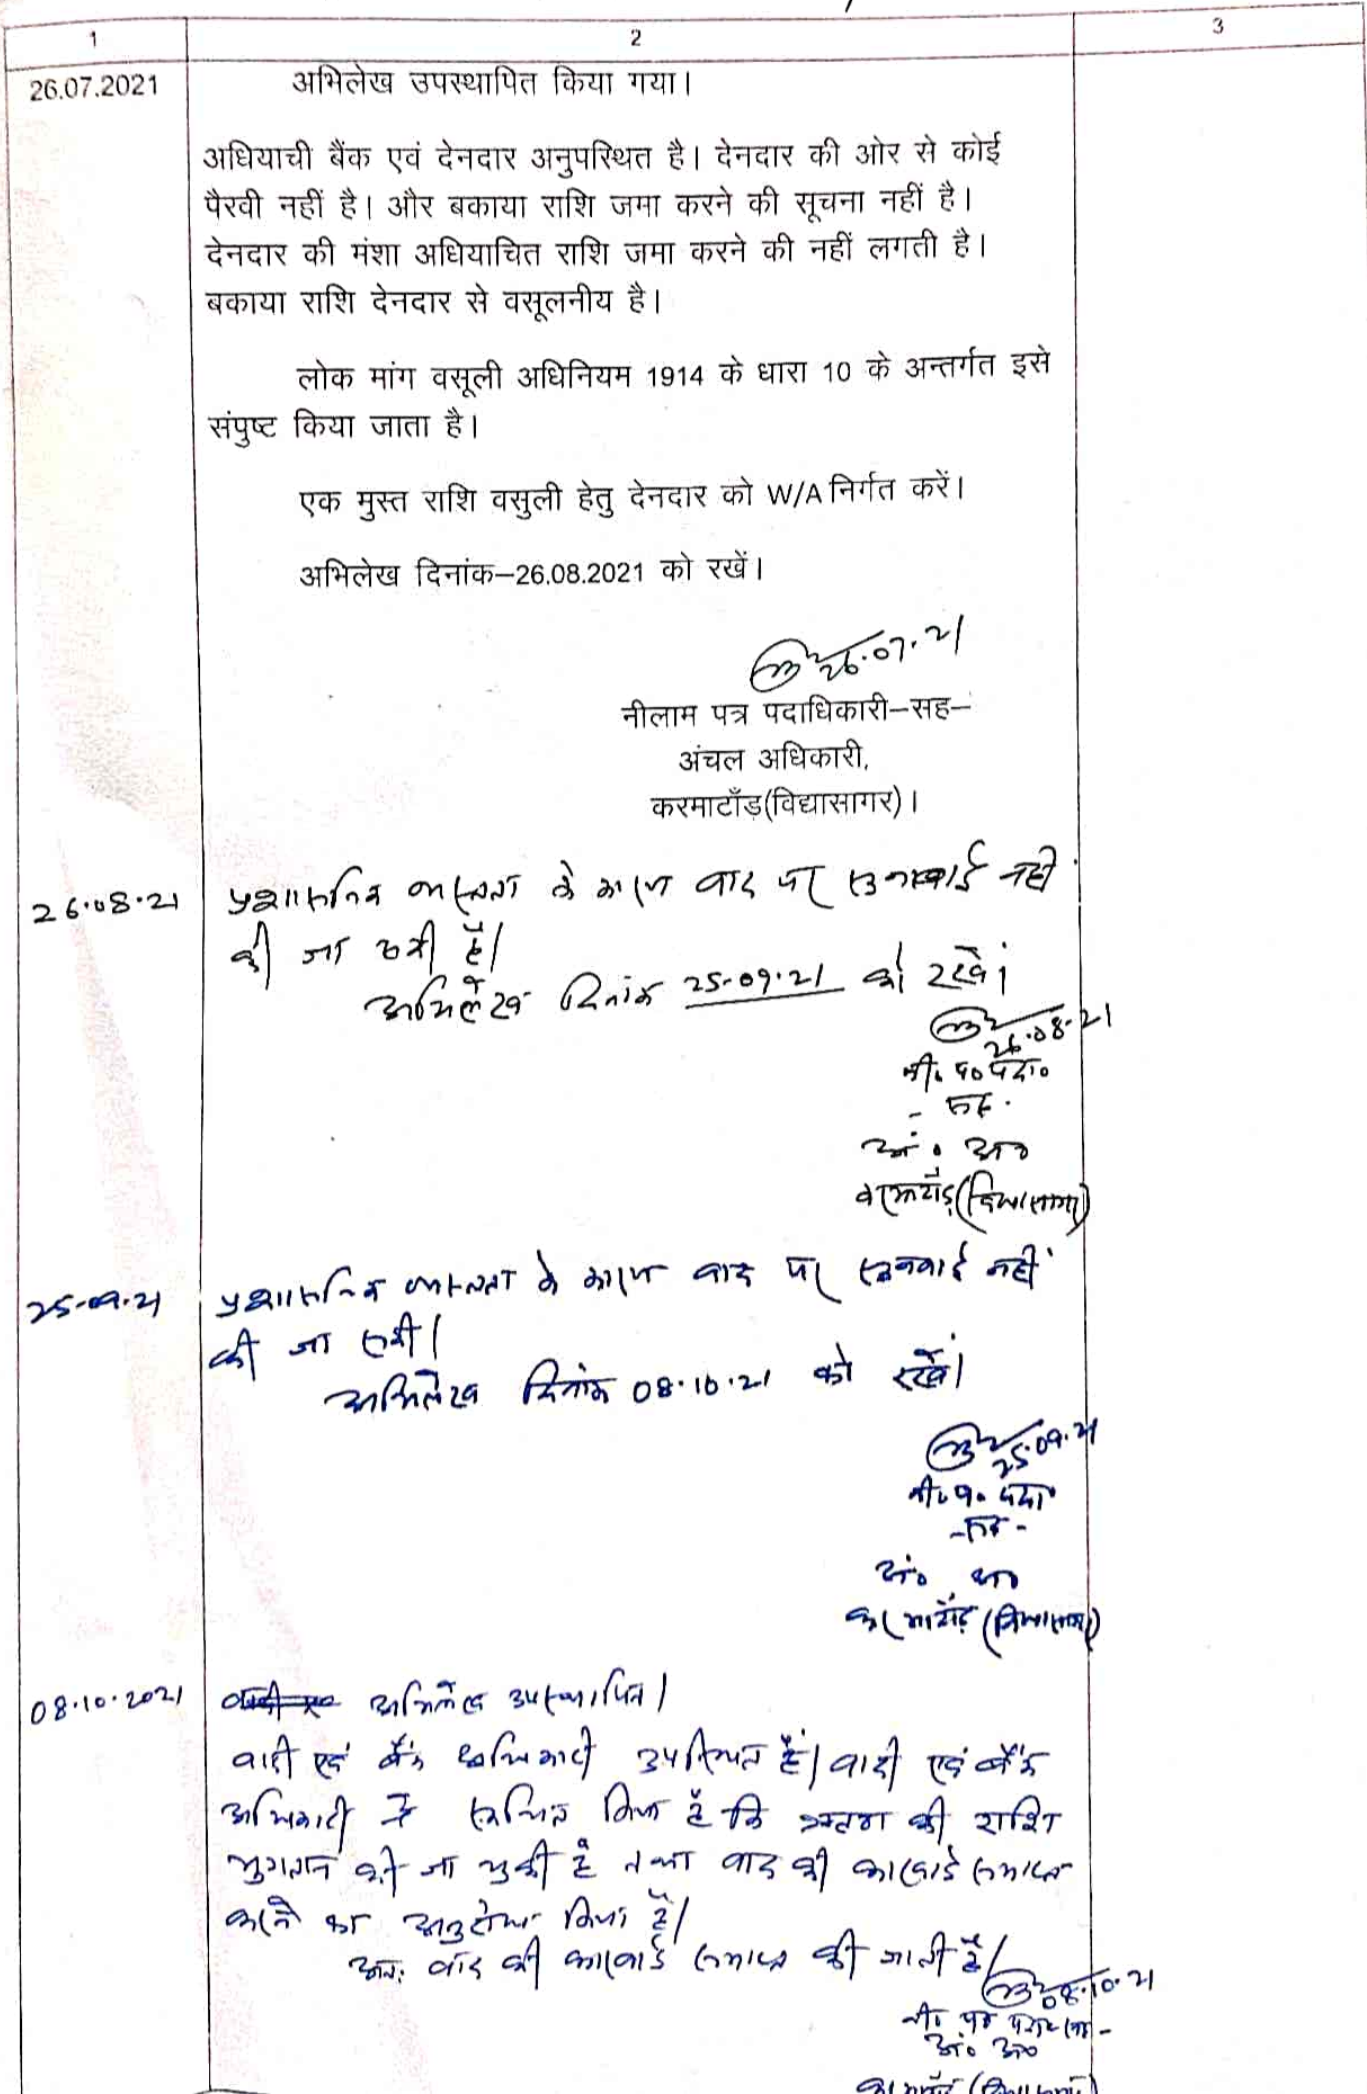 1 2 3
26.07.2021 अभिलेख उपस्थापित किया गया।
अधियाची बैंक एवं देनदार अनुपस्थित है। देनदार की ओर से कोई
पैरवी नहीं है। और बकाया राशि जमा करने की सूचना नहीं है।
देनदार की मंशा अधियाचित राशि जमा करने की नहीं लगती है।
बकाया राशि देनदार से वसूलनीय है।
लोक मांग वसूली अधिनियम 1914 के धारा 10 के अन्तर्गत इसे
संपुष्ट किया जाता है।
एक मुस्त राशि वसुली हेतु देनदार को W/A निर्गत करें।
अभिलेख दिनांक–26.08.2021 को रखें।
26.07.21
नीलाम पत्र पदाधिकारी–सह–
अंचल अधिकारी,
करमाटाँड़(विद्यासागर)।
26.08.21 प्रशासनिक व्यस्तता के कारण वाद पर सुनवाई नहीं
की जा सकी है।
अभिलेख दिनांक 25.09.21 को रखें।
26.08.21
नी० प० पदा०
- सह -
अं० अ०
करमाटाँड़(विद्यासागर)
25.09.21 प्रशासनिक व्यस्तता के कारण वाद पर सुनवाई नहीं
की जा सकी।
अभिलेख दिनांक 08.10.21 को रखें।
25.09.21
नी० प० पदा०
-सह-
अं० अ०
करमाटाँड़ (विद्यासागर)
08.10.2021 अभिलेख उपस्थापित।
वादी एवं बैंक अधिकारी उपस्थित हैं। वादी एवं बैंक
अधिकारी ने सूचित किया है कि की राशि
भुगतान की जा चुकी है तथा वाद की कारवाई समाप्त
करने का अनुरोध किया है।
अतः वाद की कारवाई समाप्त की जाती है।
08.10.21
नी० पत्र
अं० अ०
करमाटाँड़ (विद्यासागर)